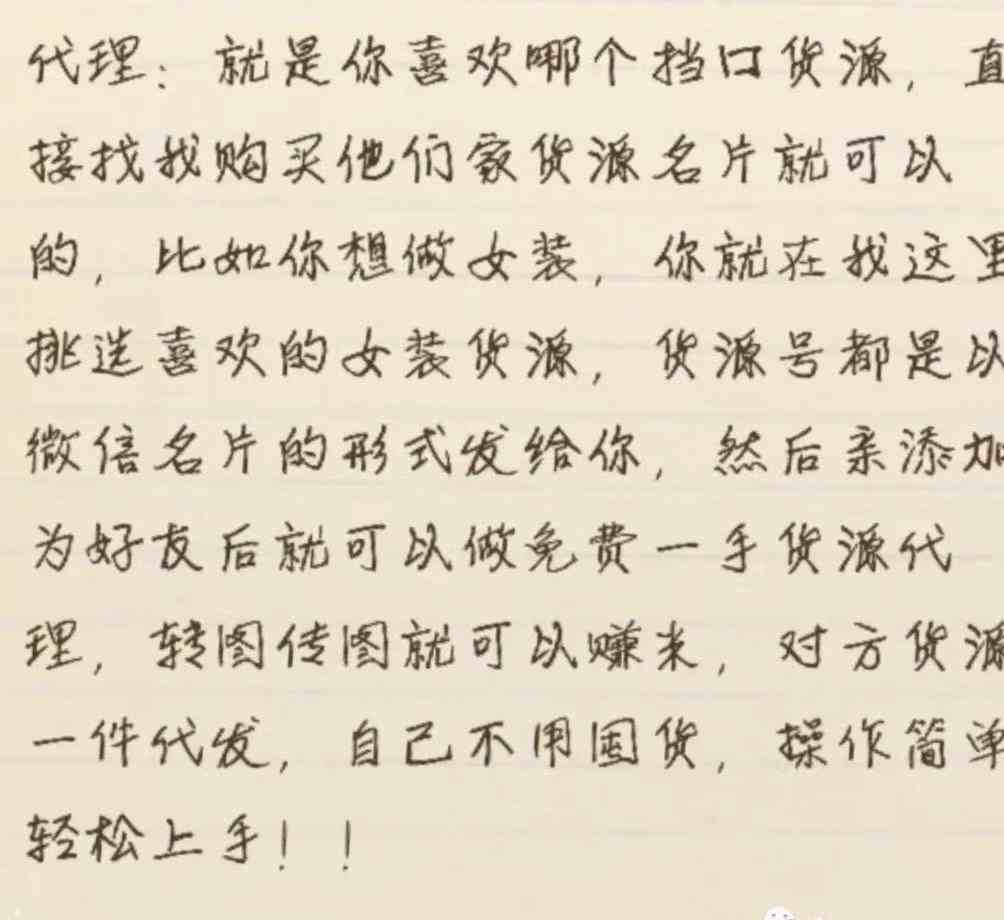 代理：就是你喜欢哪个挡口货源，直
接找我购买他们家货源名片就可以
的，比如你想做女装，你就在我这里
挑选喜欢的女装货源，货源号都是以
微信名片的形式发给你，然后亲添加
为好友后就可以做免费一手货源代
理，转图传图就可以赚米，对方货源
一件代发，自己不用囤货，操作简单
轻松上手！！